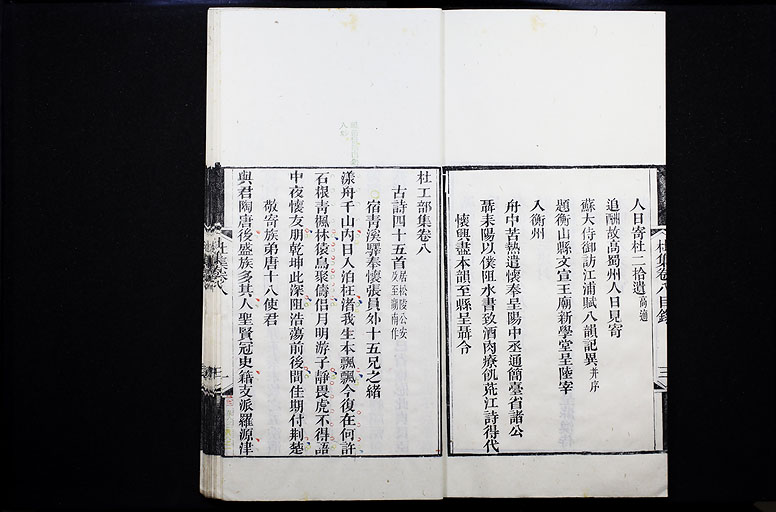 人日寄杜二拾遺高適
追酬故高蜀州人日見寄
蘇大侍御訪江浦賦八韻記異并序
題衡山縣文宣王廟新學堂呈陸宰
入衡州
舟中苦熱遣懷奉呈陽中丞通簡臺省諸公
聶耒陽以僕阻水書致酒肉療飢荒江詩得代
懷興盡本韻至縣呈聶令
杜集卷八目錄
三
杜工部集卷八
古詩四十五首居松陵公安及至湖南作
宿青溪驛奉懷張員外十五兄之緒
漾舟千山內日入泊枉渚我生本飄飄今復在何許
石根青楓林猿鳥聚儔侶月明游子靜畏虎不得語
中夜懷友朋乾坤此深阻浩蕩前後間佳期付荊楚
敬寄族弟唐十八使君
與君陶唐後盛族多其人聖賢冠史籍支派羅源津
杜集卷八
一